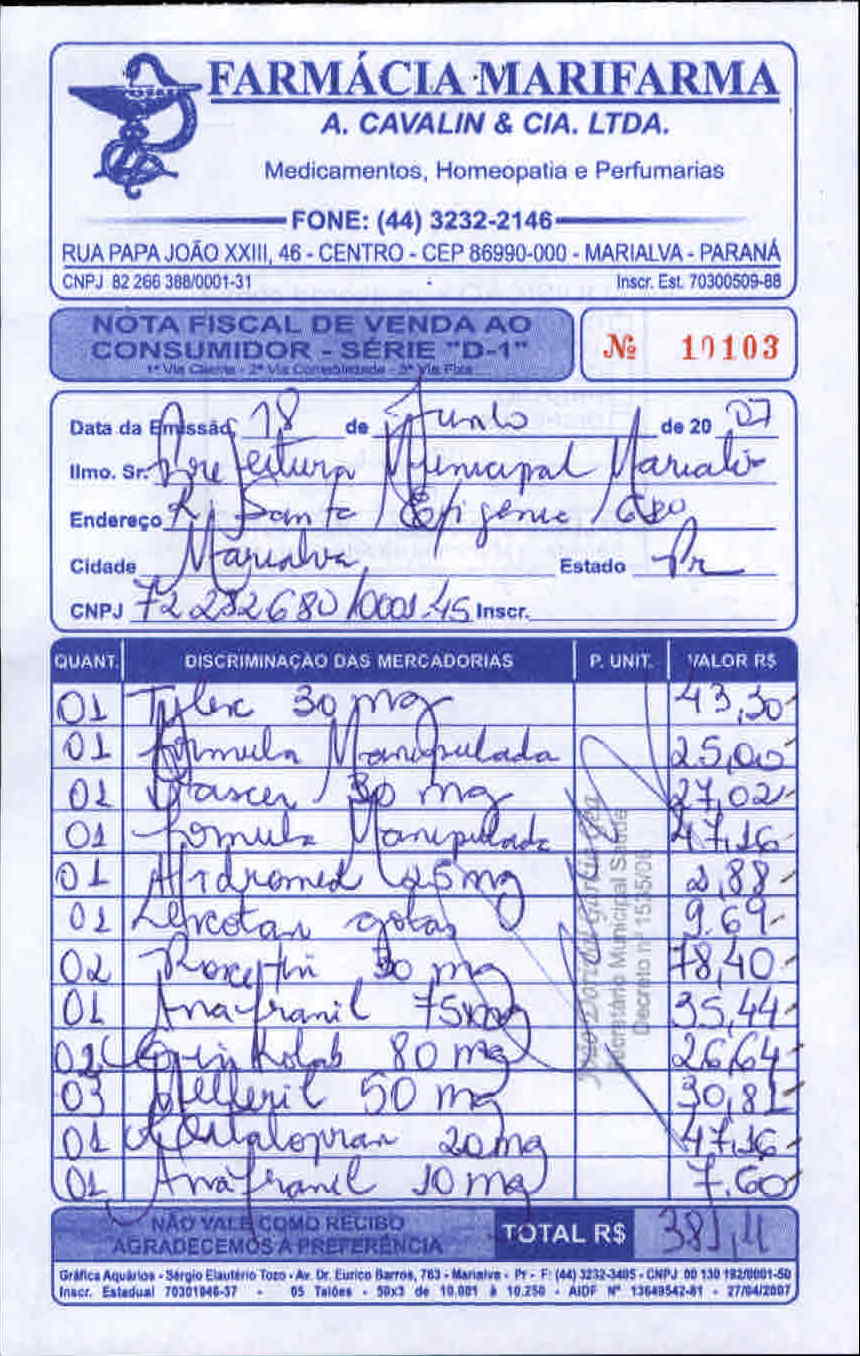 FARMÁCIA MARIFARMA
A. CAVALIN & CIA. LTDA.
Medicamentos, Homeopatia e Perfumarias
FONE: (44) 3232-2146
RUA PAPA JOÃO XXIII, 46 - CENTRO - CEP 86990-000 - MARIALVA - PARANÁ
CNPJ 82 266 388/0001-31 Inscr. Est. 70300509-88
NOTA FISCAL DE VENDA AO
CONSUMIDOR - SÉRIE "D-1" Nº 10103
1ª Via Cliente - 2ª Via Contabilidade - 3ª Via Fixa
Data da Emissão 18 de Junho de 20 07
Ilmo. Sr. Prefeitura Municipal
Endereço R. Santa Efigenia 680
Cidade Marialva Estado Pr
CNPJ 72 282 680/0001-45 Inscr.
QUANT. DISCRIMINAÇÃO DAS MERCADORIAS P. UNIT. VALOR R$
01 30 mg 43,30
01 Formula Manipulada 25,00
01 30 mg 27,02
01 Formula Manipulada 47,16
01 25 mg 2,88
01 gotas 9,69
02 30 mg 78,40
01 Anafranil 75 mg 35,44
02 80 mg 26,64
03 Melleril 50 mg 30,81
01 20 mg 47,16
01 Anafranil 10 mg 7,60
Secretário Municipal Saúde
NÃO VALE COMO RECIBO
AGRADECEMOS A PREFERÊNCIA TOTAL R$ 381,11
Gráfica Aquários - Sérgio Elautério Tozo - Av. Dr. Eurico Barros, 763 - Marialva - Pr - F: (44) 3232-3405 - CNPJ 00 130 192/0001-50
Inscr. Estadual 70301946-37 - 05 Talões - 50x3 de 10.001 à 10.250 - AIDF Nº 13649542-81 - 27/04/2007